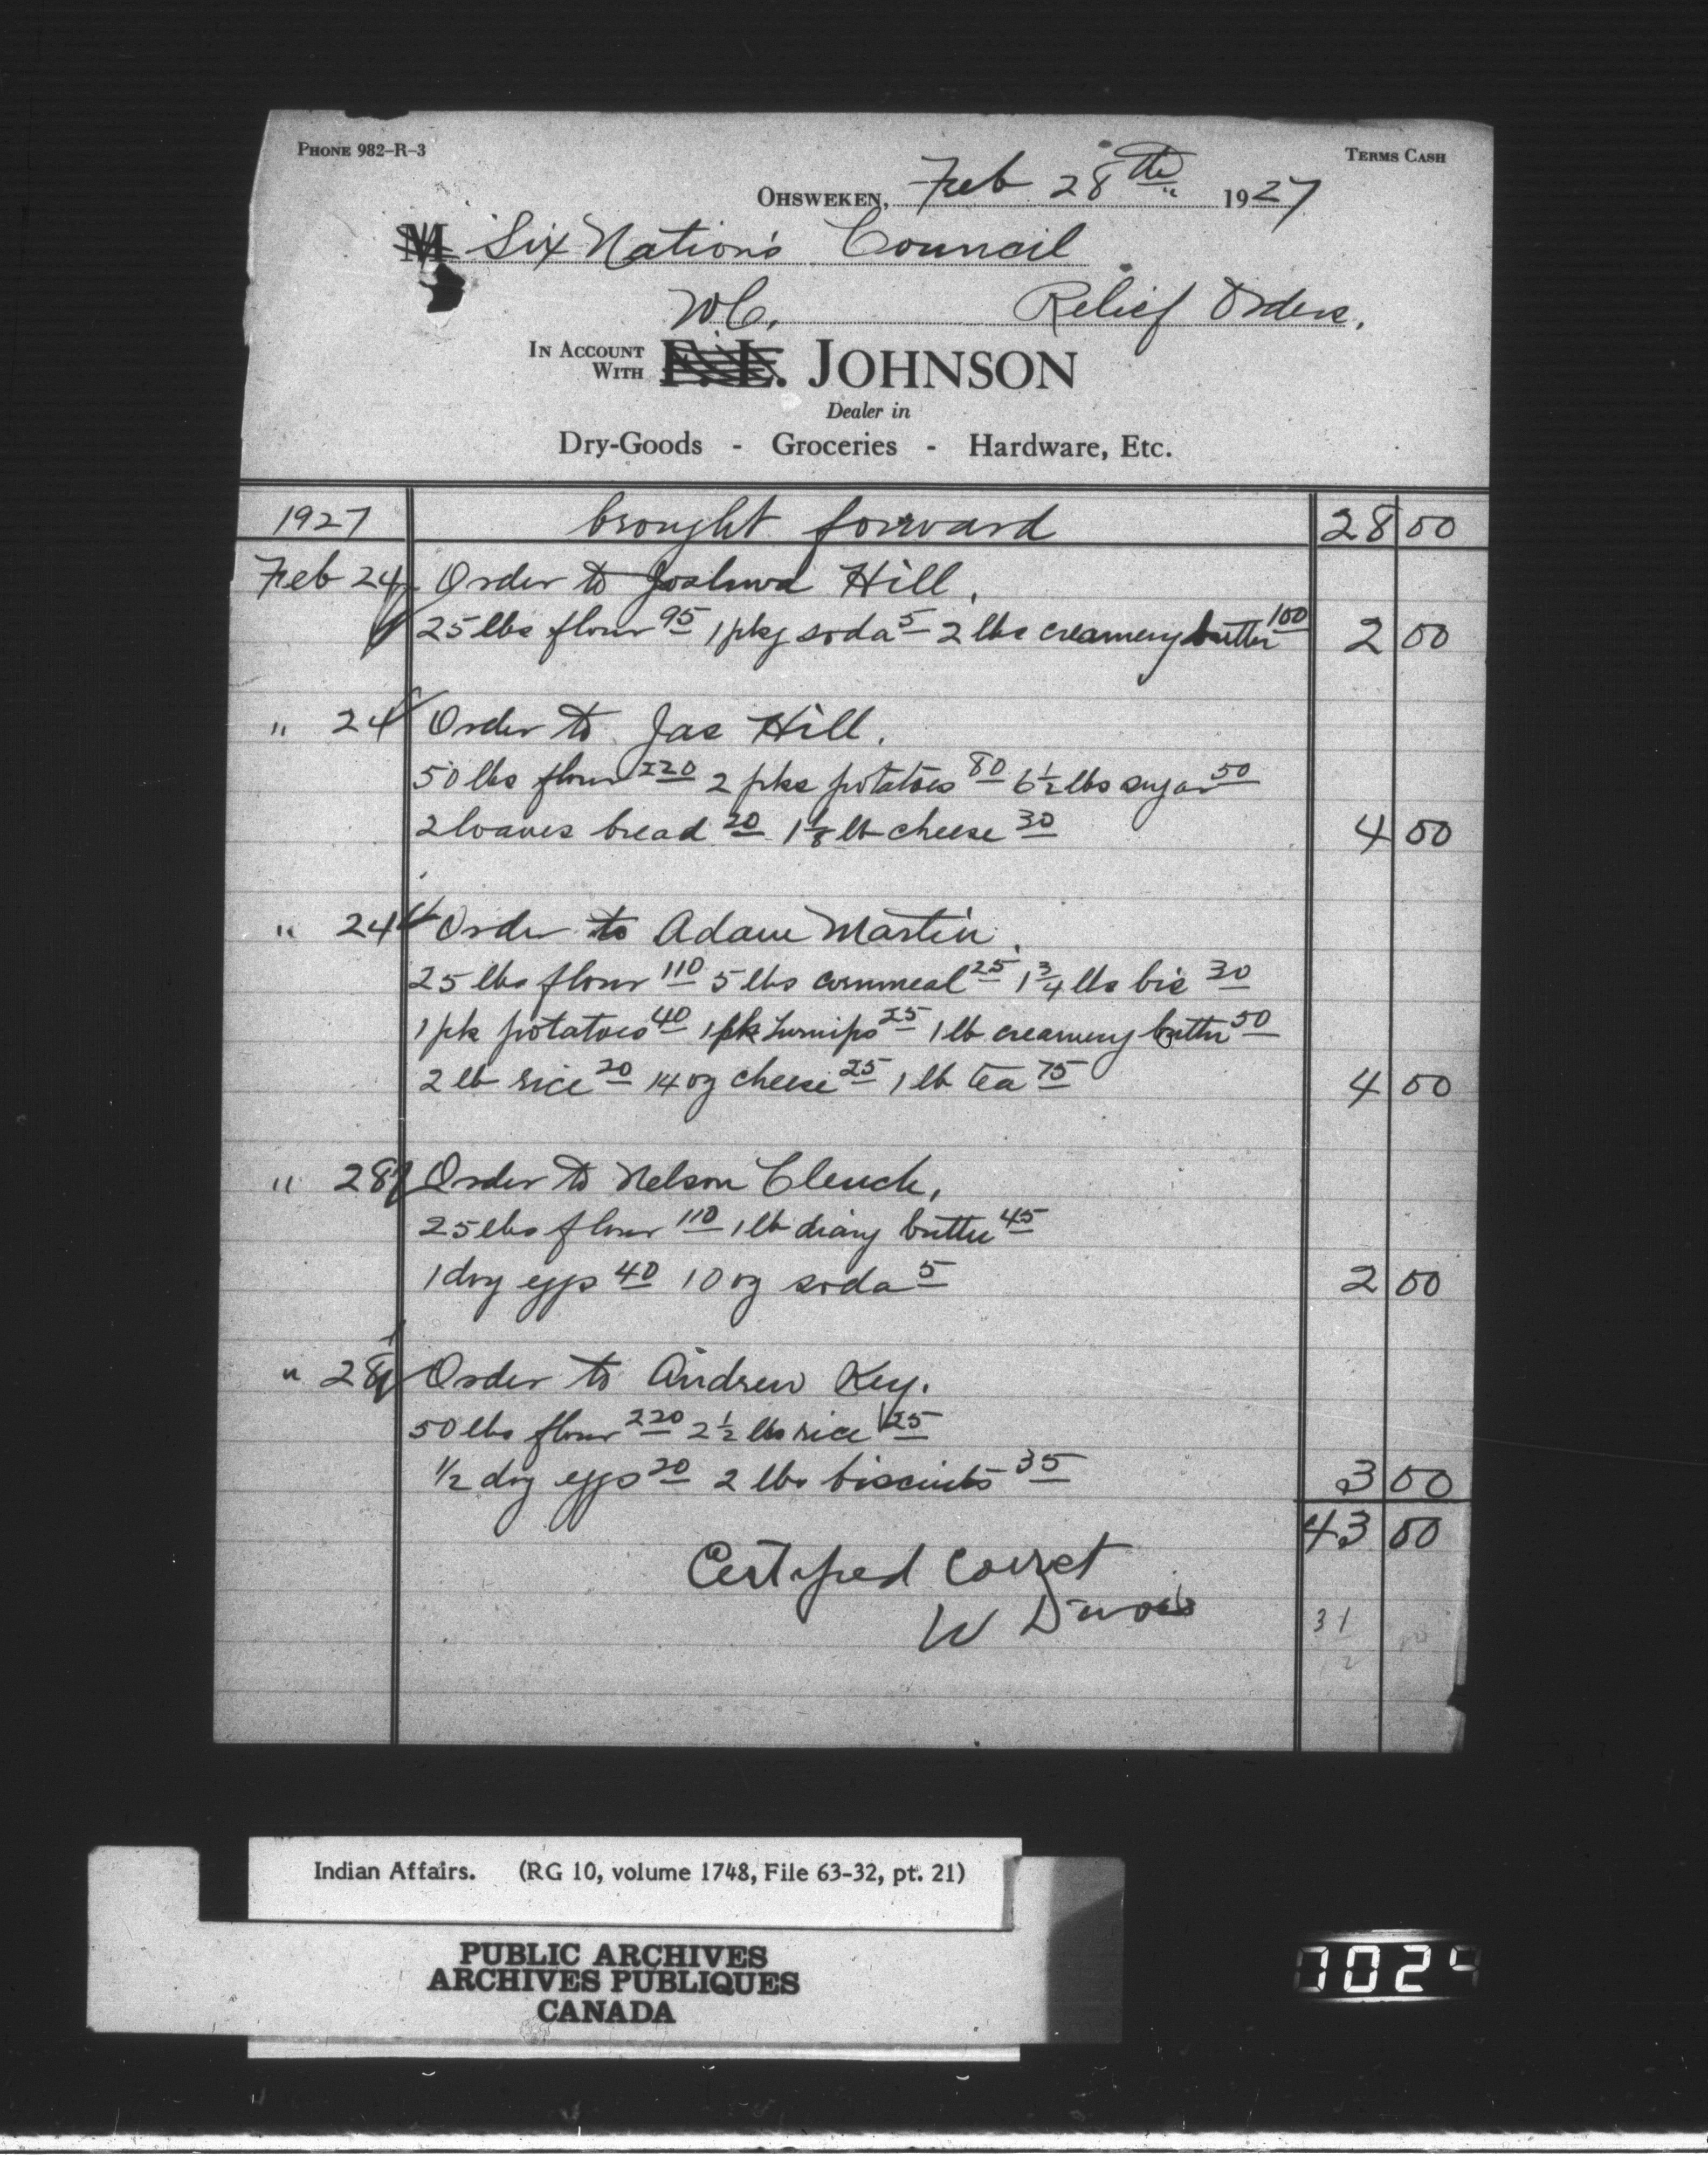 PHONE 982-R-3
TERMS CASH
OHSWEKEN, Feb 28th 1927
M Six Nations Council
Relief Orders.
W.C.
IN ACCOUNT WITH F. L. JOHNSON
Dealer in
Dry-Goods - Groceries - Hardware, Etc.
1927 brought forward 28 00
Feb 24 Order to Joshua Hill.
25 lbs flour 95 1 pkg soda 5 2 lbs creamery butter 100 2 00
" 24 Order to Jas Hill.
50 lbs flour 220 2 pks potatoes 80 6½ lbs sugar 50
2 loaves bread 20 1⅛ lb cheese 30 4 00
" 24 Order to Adam Martin.
25 lbs flour 110 5 lbs cornmeal 25 1¾ lbs bis 30
1 pk potatoes 40 1 pk turnips 25 1 lb creamery butter 50
2 lb rice 20 14 oz cheese 25 1 lb tea 75 4 00
" 28 Order to Nelson Clench.
25 lbs flour 110 1 lb diary butter 45
1 doz eggs 40 10 oz soda 5 2 00
" 28 Order to Andrew Key.
50 lbs flour 220 2½ lbs rice 25
1/2 doz eggs 20 2 lbs biscuits 35 3 00
43 00
Certified Correct
W
31
2
Indian Affairs. (RG 10, volume 1748, File 63-32, pt. 21)
PUBLIC ARCHIVES
ARCHIVES PUBLIQUES
CANADA
7024